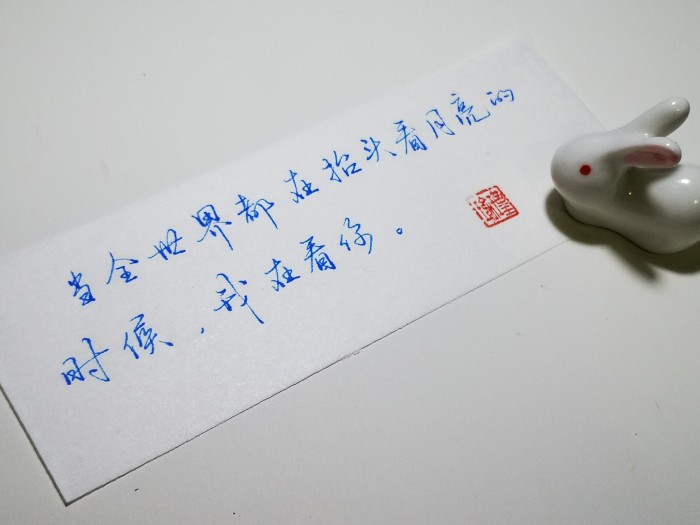 当全世界都在抬头看月亮的
时候,我在看你。